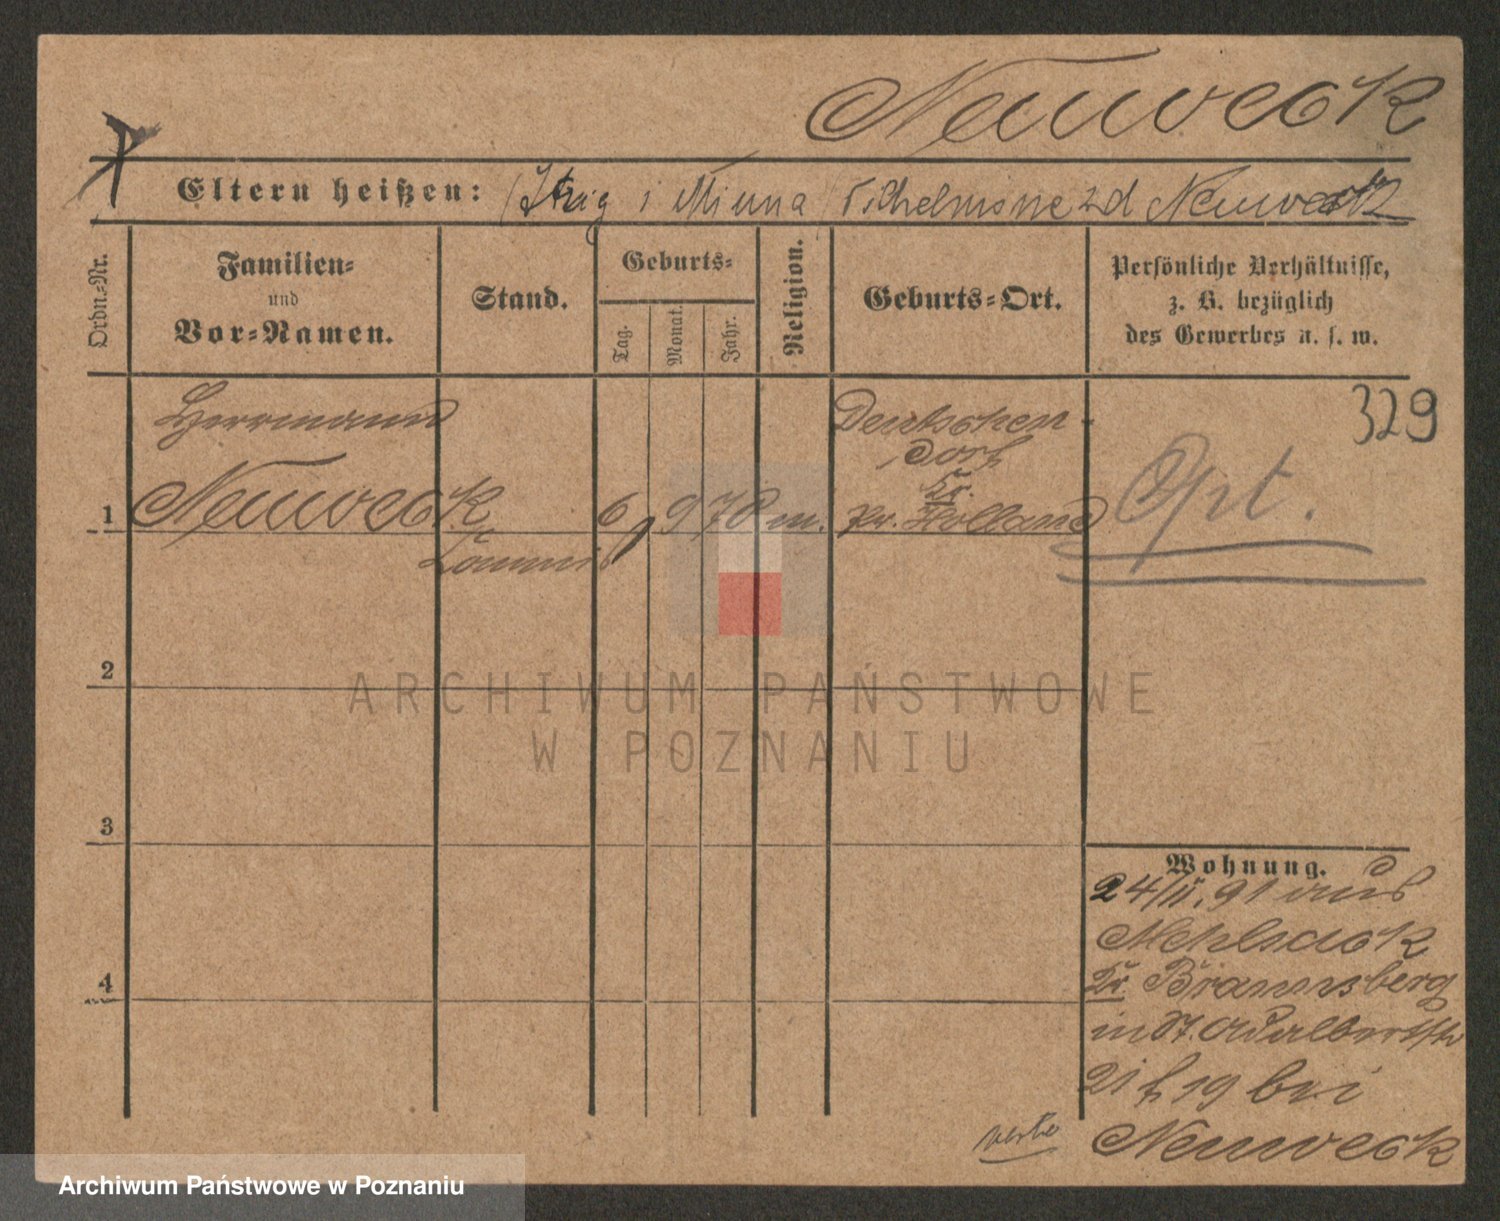 Neuweck
Eltern heißen: i Minna Neuweck
Ordn.-Nr.
Familien-
und
Vor-Namen.
Stand.
Geburts-
Tag.
Monat.
Jahr.
Religion.
Geburts-Ort.
Persönliche Verhältnisse,
z. B. bezüglich
des Gewerbes u. s. w.
329
1
Herrmann
Neuweck
6 9 70 m.
Deutschen-
dorf
Kr.
Pr. Holland
Opt.
2
3
4
Wohnung.
24/11.91 aus
Mehlsack
Kr. Braunsberg
in St. Adalbertstr
21 h 19 bei
Neuweck
ARCHIWUM PAŃSTWOWE
W POZNANIU
Archiwum Państwowe w Poznaniu